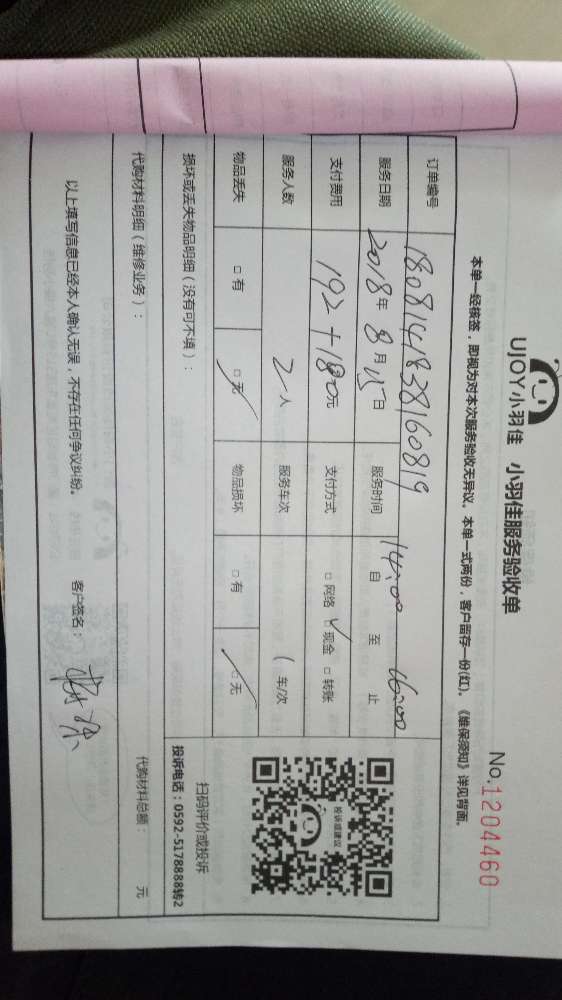 UJOY小羽佳 小羽佳服务验收单
No.1204460
本单一经核签，即视为对本次服务验收无异议。本单一式两份，客户留存一份(红)。《维保须知》详见背面。
订单编号 1808141838160819
服务日期 2018年8月15日 服务时间 14:00 自 至 16:00 止
支付费用 192+180元 支付方式 □网络 □现金 □转账
服务人数 2人 服务车次 1车/次
物品丢失 □有 □无 物品损坏 □有 □无
投诉或建议
扫码评价或投诉
投诉电话：0592-5178888转2
损坏或丢失物品明细（没有可不填）：
代购材料明细（维修业务）： 代购材料总额： 元
以上填写信息已经本人确认无误，不存在任何争议纠纷。 客户签名：